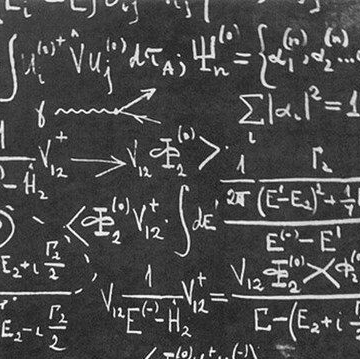 ∫ u_i^{(0)+} V̂ u_j^{(0)} dτ_A; Ψ_n^{(0)} = { α_1^{(n)}, α_2^{(n)}...
γ
Σ_i |α_i|² = 1
- Ĥ_2 V_{12}^+ → V_{12} Φ_2^{(0)} >
< Φ_2^{(0)} V_{12}^+ · ∫ dE' 1/2π Γ_2 / (E' - E_2)² + 1/4
E^{(-)} - E'
E_2 + i Γ_2/2
E_2 - i Γ_2/2
V_{12} 1/(E^{(-)} - Ĥ_2) V_{12}^+ = V_{12} Φ_2^{(0)} >< Φ / E - (E_2 + i